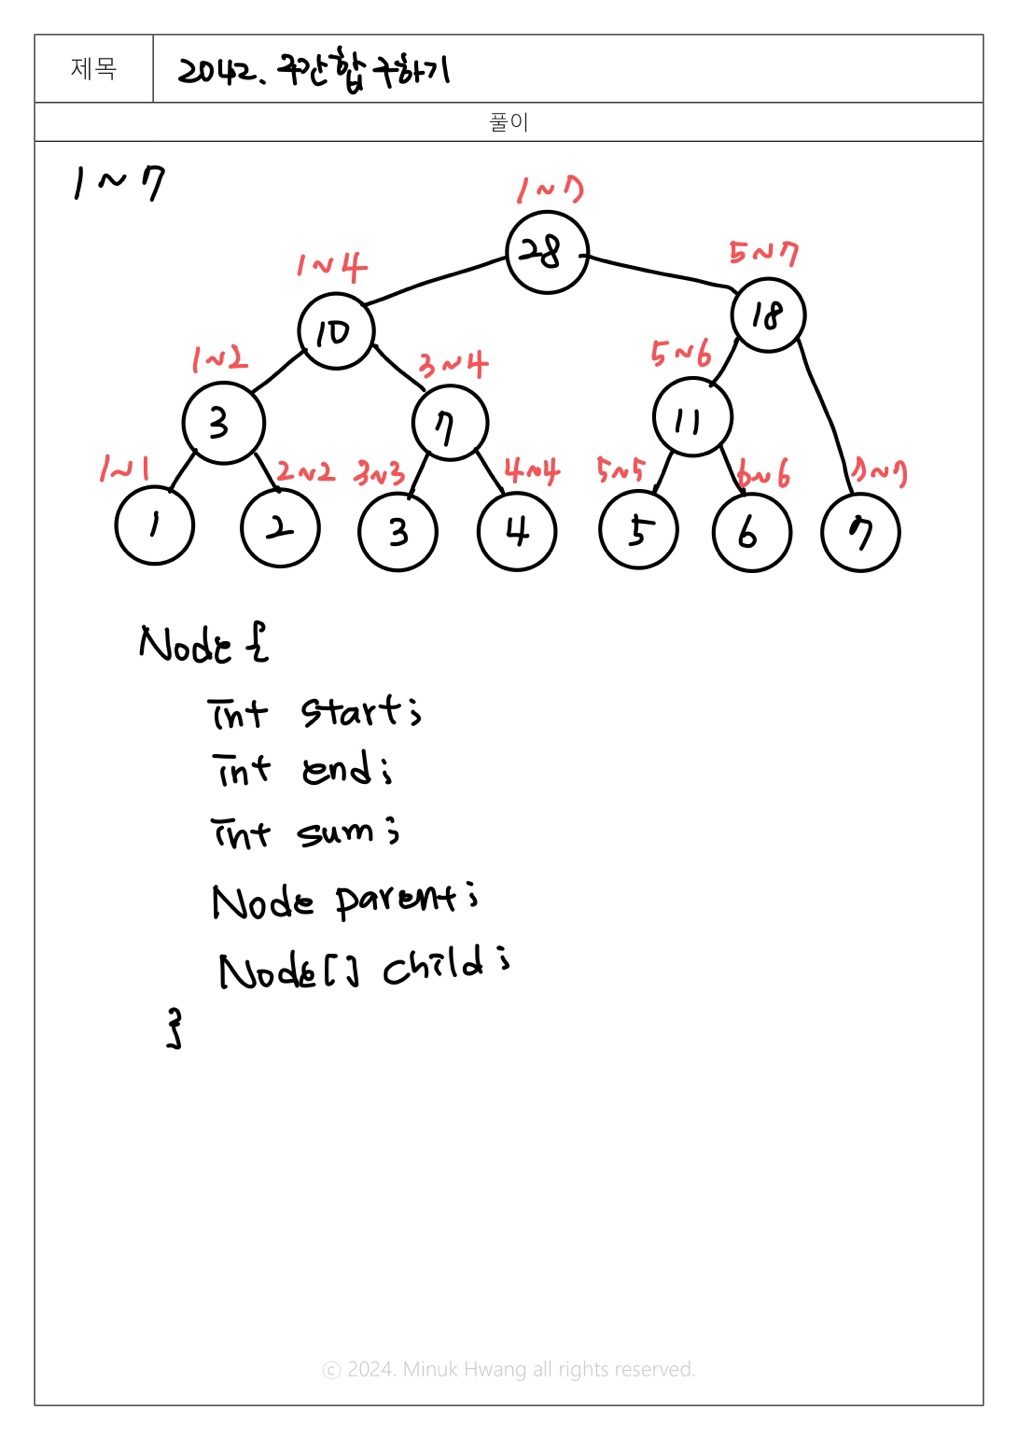 제목 2042. 구간합 구하기
풀이
1 ~ 7
1 ~ 7
28
1 ~ 4
5 ~ 7
10
18
1 ~ 2
3 ~ 4
5 ~ 6
3
7
11
1 ~ 1
2 ~ 2
3 ~ 3
4 ~ 4
5 ~ 5
6 ~ 6
7 ~ 7
1
2
3
4
5
6
7
Node {
int start;
int end;
int sum;
Node parent;
Node[] child;
}
ⓒ 2024. Minuk Hwang all rights reserved.